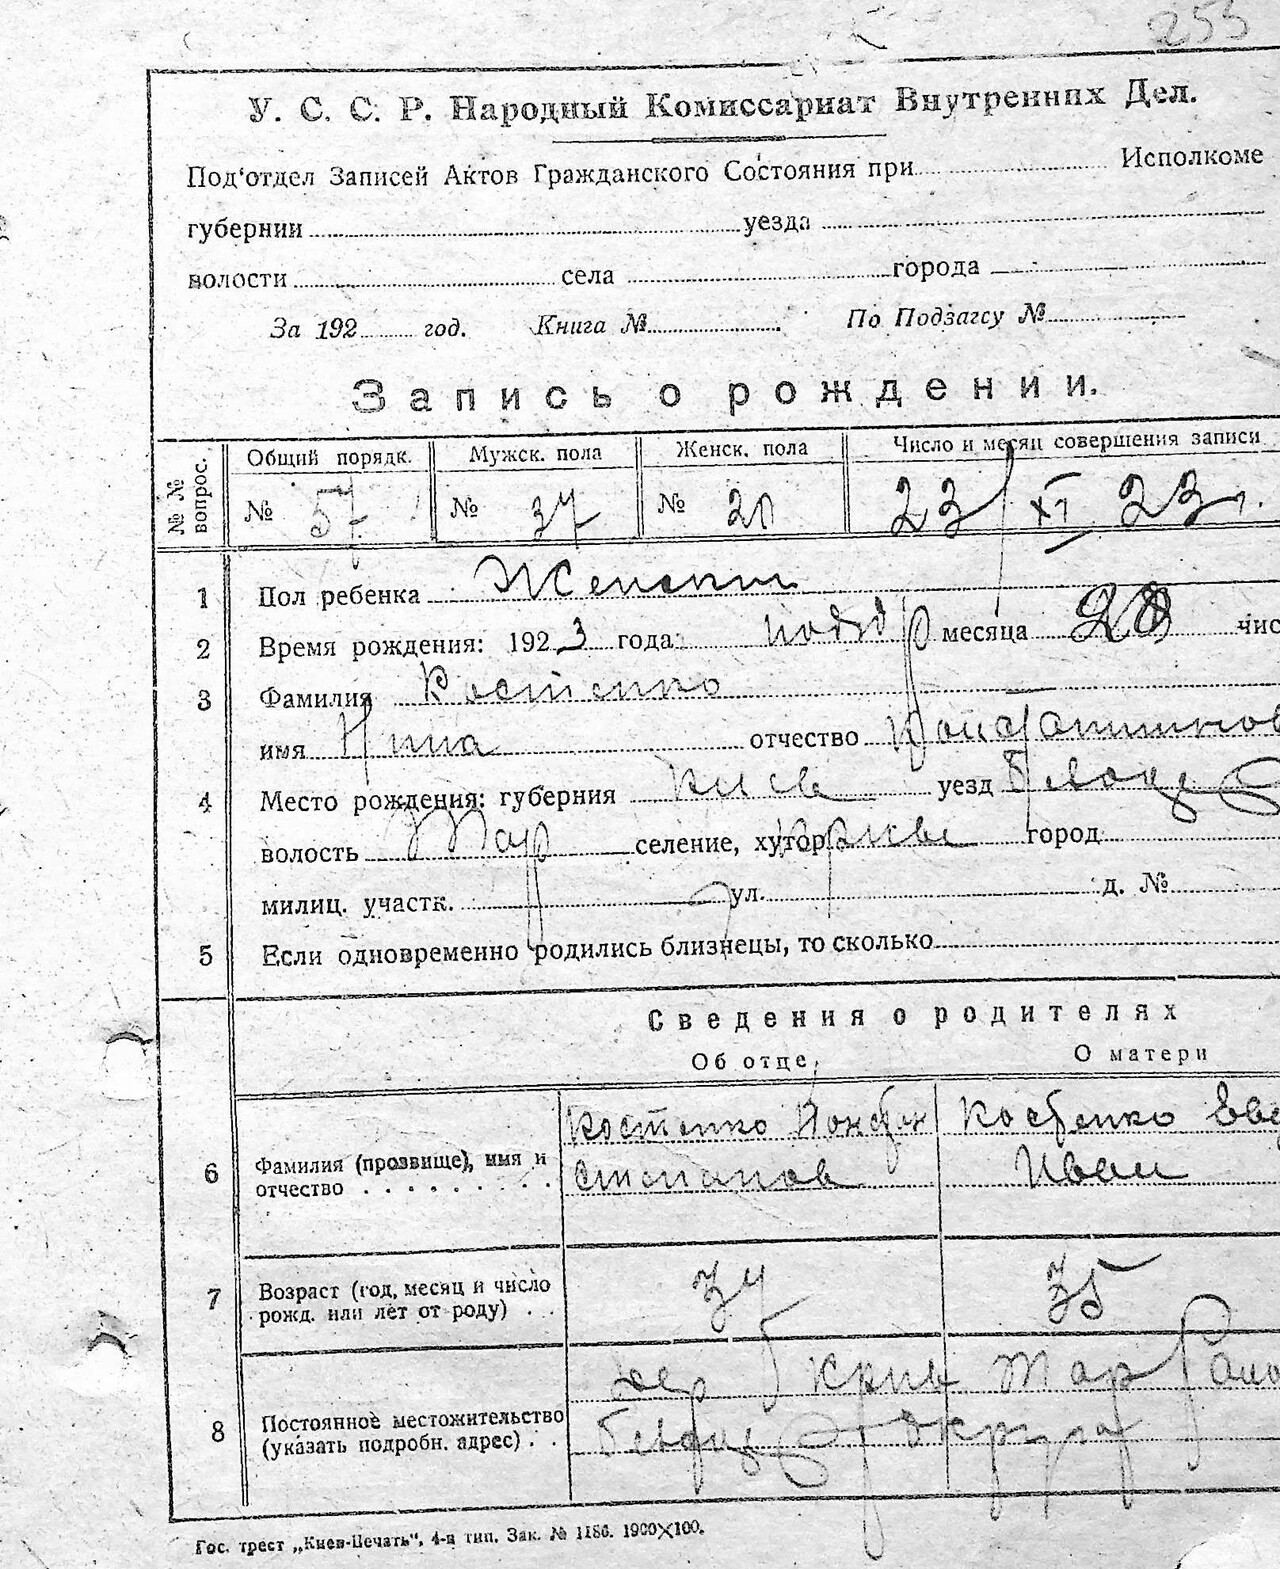 255
У. С. С. Р. Народный Комиссариат Внутренних Дел.
Под'отдел Записей Актов Гражданского Состояния при Исполкоме
губернии уезда
волости села города
За 192 год. Книга № По Подзагсу №
Запись о рождении.
№№ вопрос. Общий порядк. Мужск. пола Женск. пола Число и месяц совершения записи
№ 57 № 37 № 20 23/XI 23 г.
1 Пол ребенка Женский
2 Время рождения: 1923 года месяца 28 чис
3 Фамилия Костенко
имя Нина отчество
4 Место рождения: губерния Киев уезд
волость Тар селение, хутор город
милиц. участк. ул. д. №
5 Если одновременно родились близнецы, то сколько
Сведения о родителях
Об отце О матери
6 Фамилия (прозвище), имя и Костенко Костенко Евд
отчество Степанов Иван
7 Возраст (год, месяц и число 37 35
рожд. или лет от роду)
8 дер Крив Тар
Постоянное местожительство
(указать подробн. адрес) округа
Гос. трест „Киев-Печать", 4-я тип. Зак. № 1186. 1900×100.